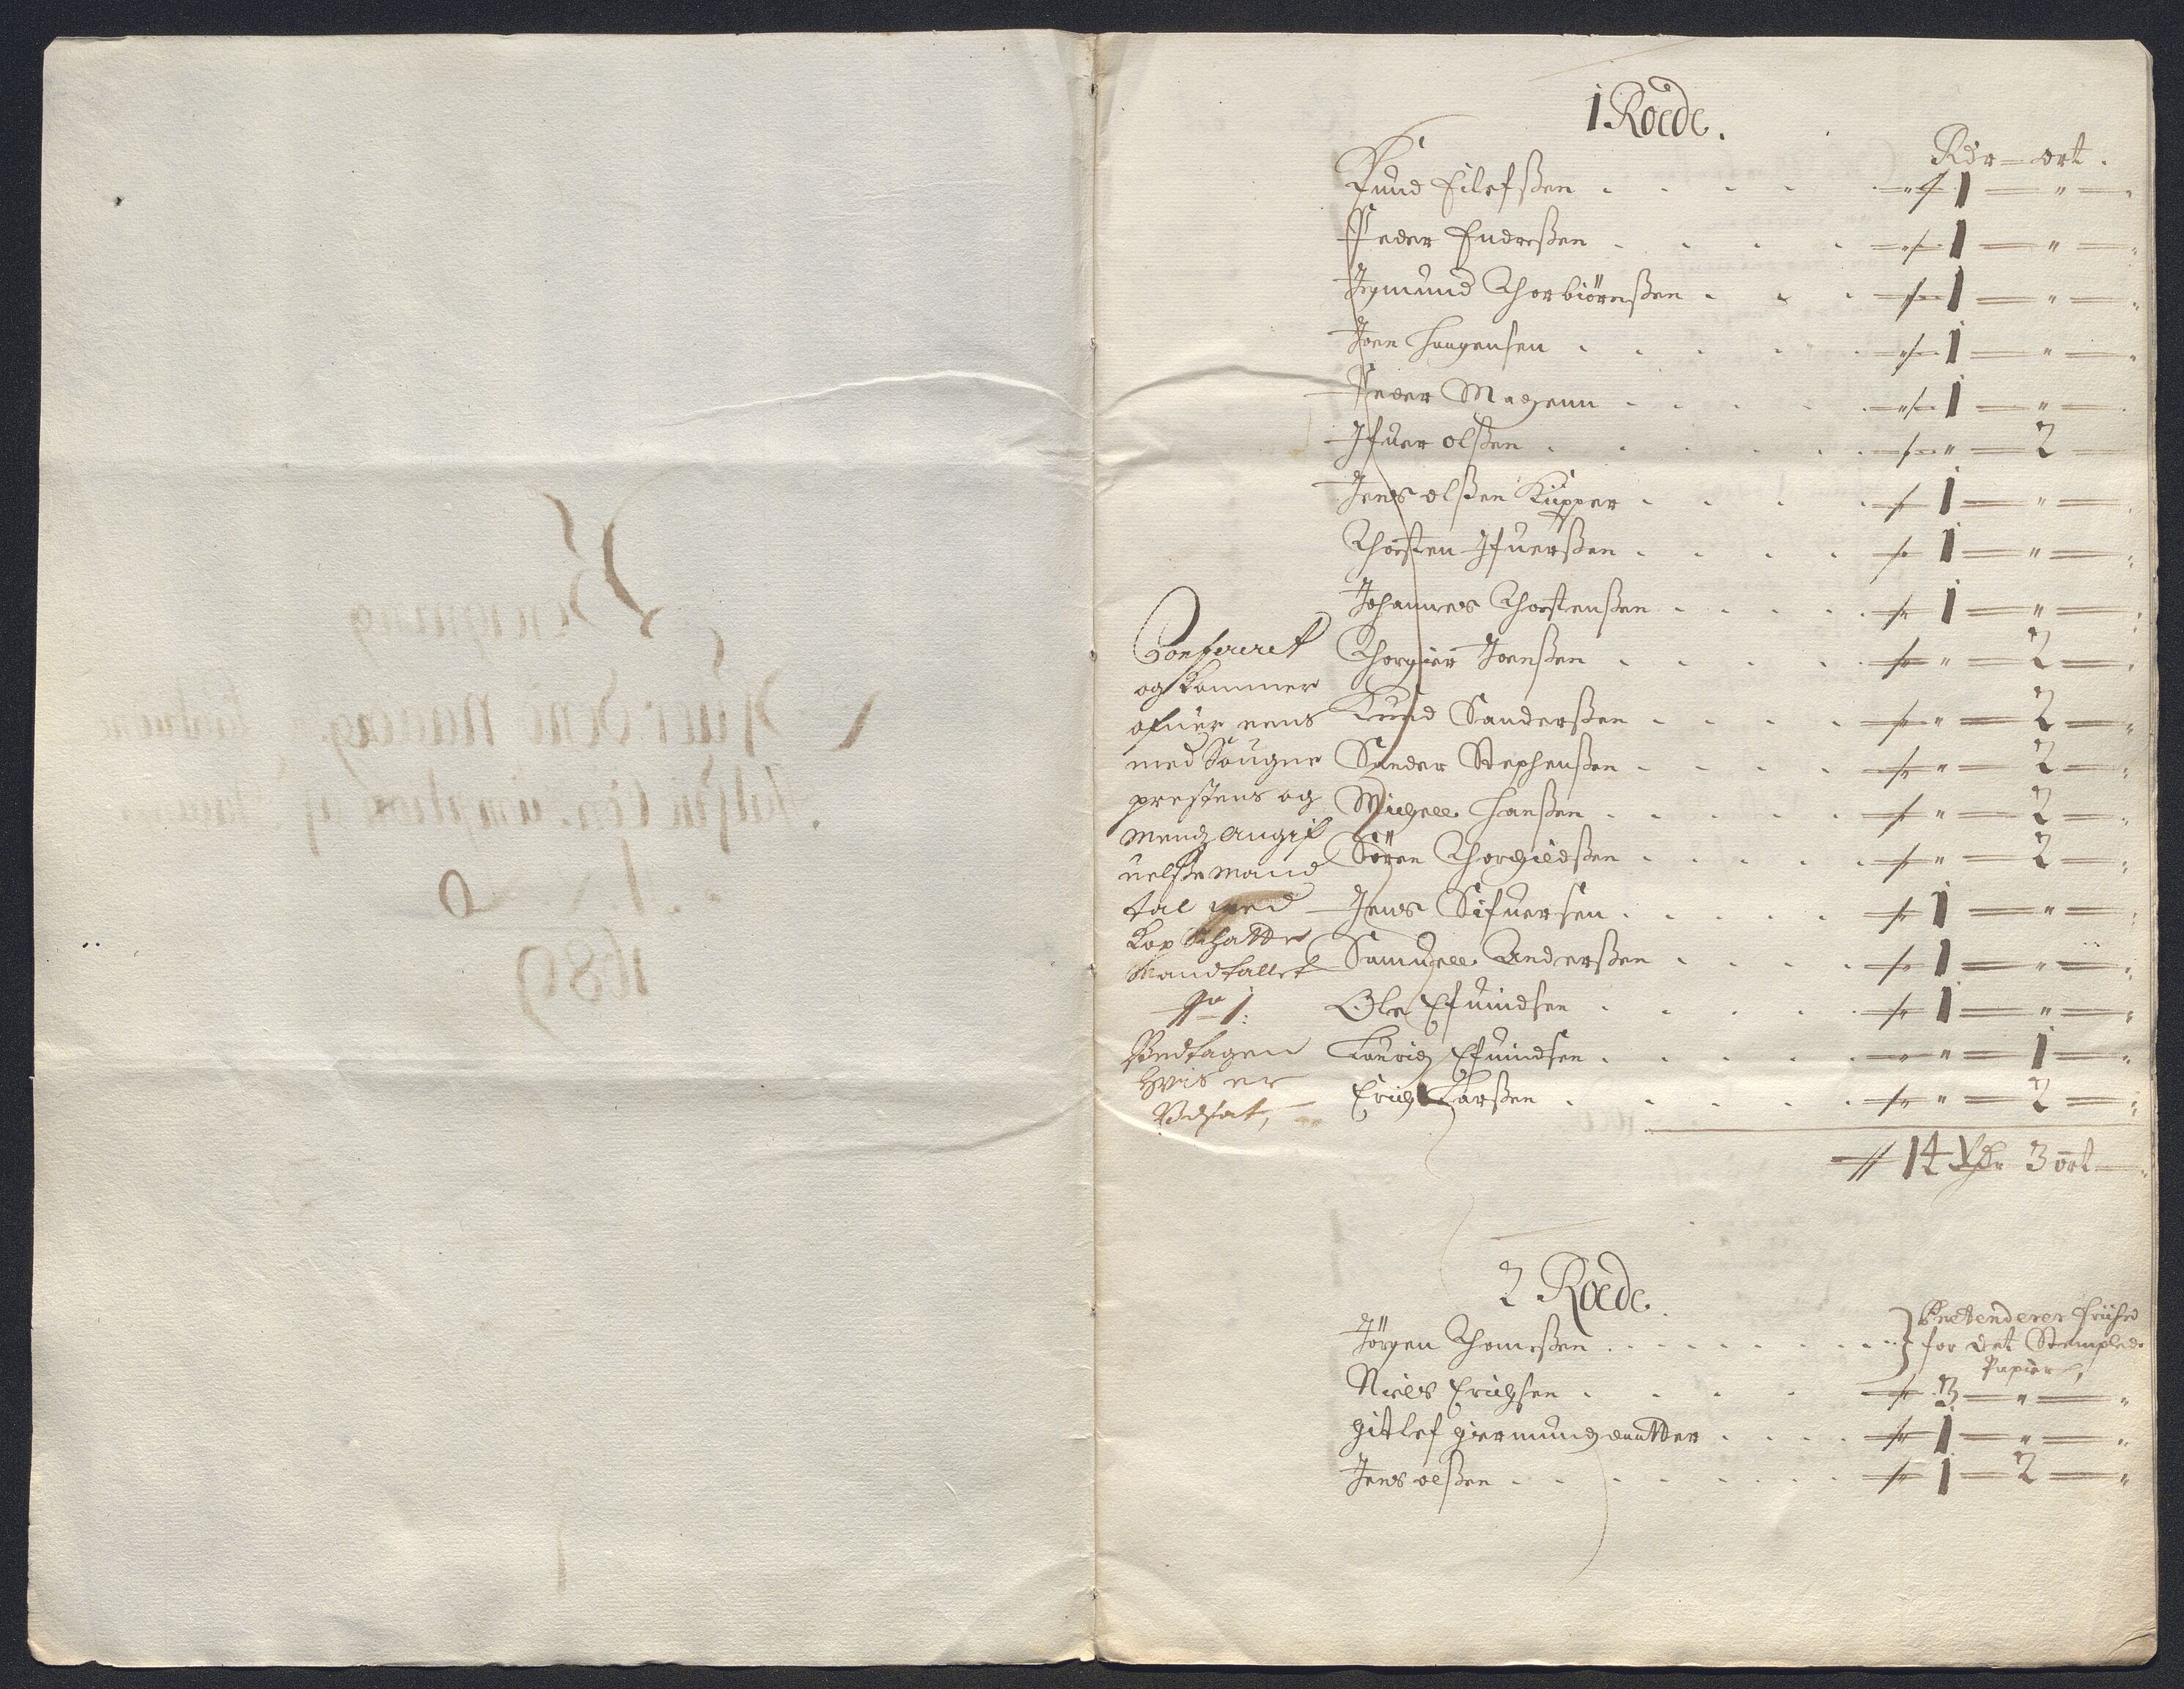 1 Roede.
Rdr — ort.
Knud Eilefssen . . . . 1 — "
Peder Endressen . . . . 1 — "
Sigmund Thorbiörnssen . . . 1 — "
Joen Haagensen . . . . . 1 — "
Peder Madzenn . . . . 1 — "
Ifuer olssen . . . . . . " — 2
Jens olssen Küpper . . . . 1 — "
Thorsten Ifuerssen . . . . 1 — "
Johannes Thorstenssen . . . . 1 — "
Thorgier Joenssen . . . . . " — 2
Knud Sanderssen . . . . " — 2
Sander Stephenssen . . . . " — 2
Michell Hanssen . . . . . " — 2
Sören Thorgiedssen . . . . . " — 2
Jens Sifuersen . . . . . 1 — "
Samuell Anderssen . . . . 1 — "
Ole Efuindsen . . . . . 1 — "
Lauridz Efuindsen . . . . . " — 1
Erich Larssen . . . . . " — 2
14 Rdr 3 ort
Confereret
og kommer
ofuer eens
med Sougne
prestens og
Mendz Angif
uelsse Mand
tal med
Kop Schatte
Mandtallet
No 1:
Vedtagen
hvis er
Udsat,
2 Roede.
Jörgen Thomessen . . . . . . . } Pretenderer friihed
for det Stemplede
Papier,
Niels Erichsen . . . . 3 — "
gitlef giermundz daatter . . . . 1 — "
Jens olssen . . . . . . . 1 — 2
Regnning
1689